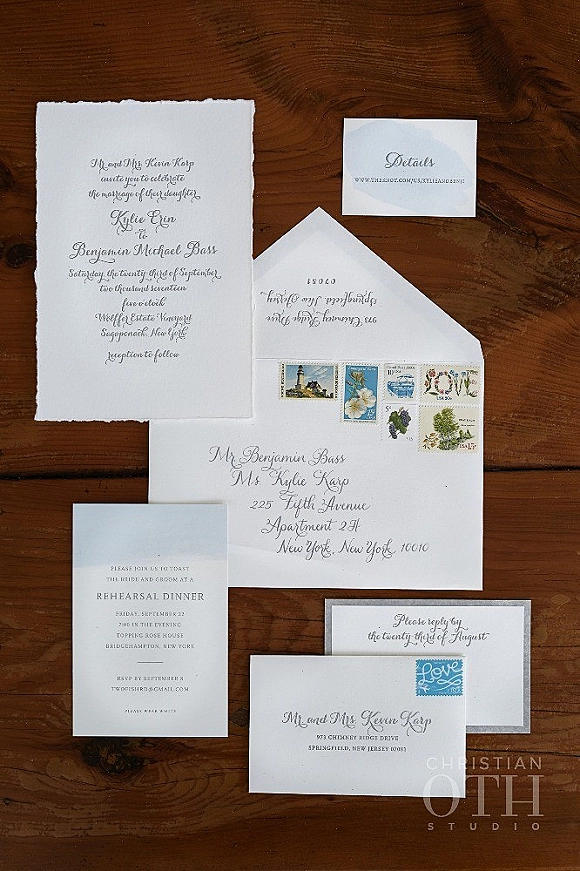 Mr and Mrs Kevin Karp
invite you to celebrate
the marriage of their daughter
Kylie Erin
to
Benjamin Michael Bass
Saturday, the twenty third of September
two thousand seventeen
five o'clock
Wölffer Estate Vineyard
Sagaponack, New York
reception to follow
Details
WWW.THEKNOT.COM/US/KYLIEANDBENJI
973 Chimney Ridge Drive
Springfield, New Jersey
07081
LOVE
USA 20c
USA 15c
Mr Benjamin Bass
Ms Kylie Karp
225 Fifth Avenue
Apartment 2H
New York, New York 10010
PLEASE JOIN US TO TOAST
THE BRIDE AND GROOM AT A
REHEARSAL DINNER
FRIDAY, SEPTEMBER 22
7:00 IN THE EVENING
TOPPING ROSE HOUSE
BRIDGEHAMPTON, NEW YORK
RSVP BY SEPTEMBER 8
TWOFISHRD@GMAIL.COM
PLEASE WEAR WHITE
Please reply by
the twenty third of August
Love
Mr and Mrs Kevin Karp
973 CHIMNEY RIDGE DRIVE
SPRINGFIELD, NEW JERSEY 07081
CHRISTIAN
OTH
STUDIO